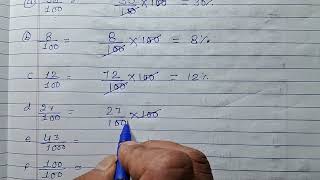 (a) 30/100 = 30/100 × 100 = 30%
(b) 8/100 = 8/100 × 100 = 8%
c 12/100 = 12/100 × 100 = 12%
d 27/100 = 27/100 × 100
e 43/100 =
f 100/100 =